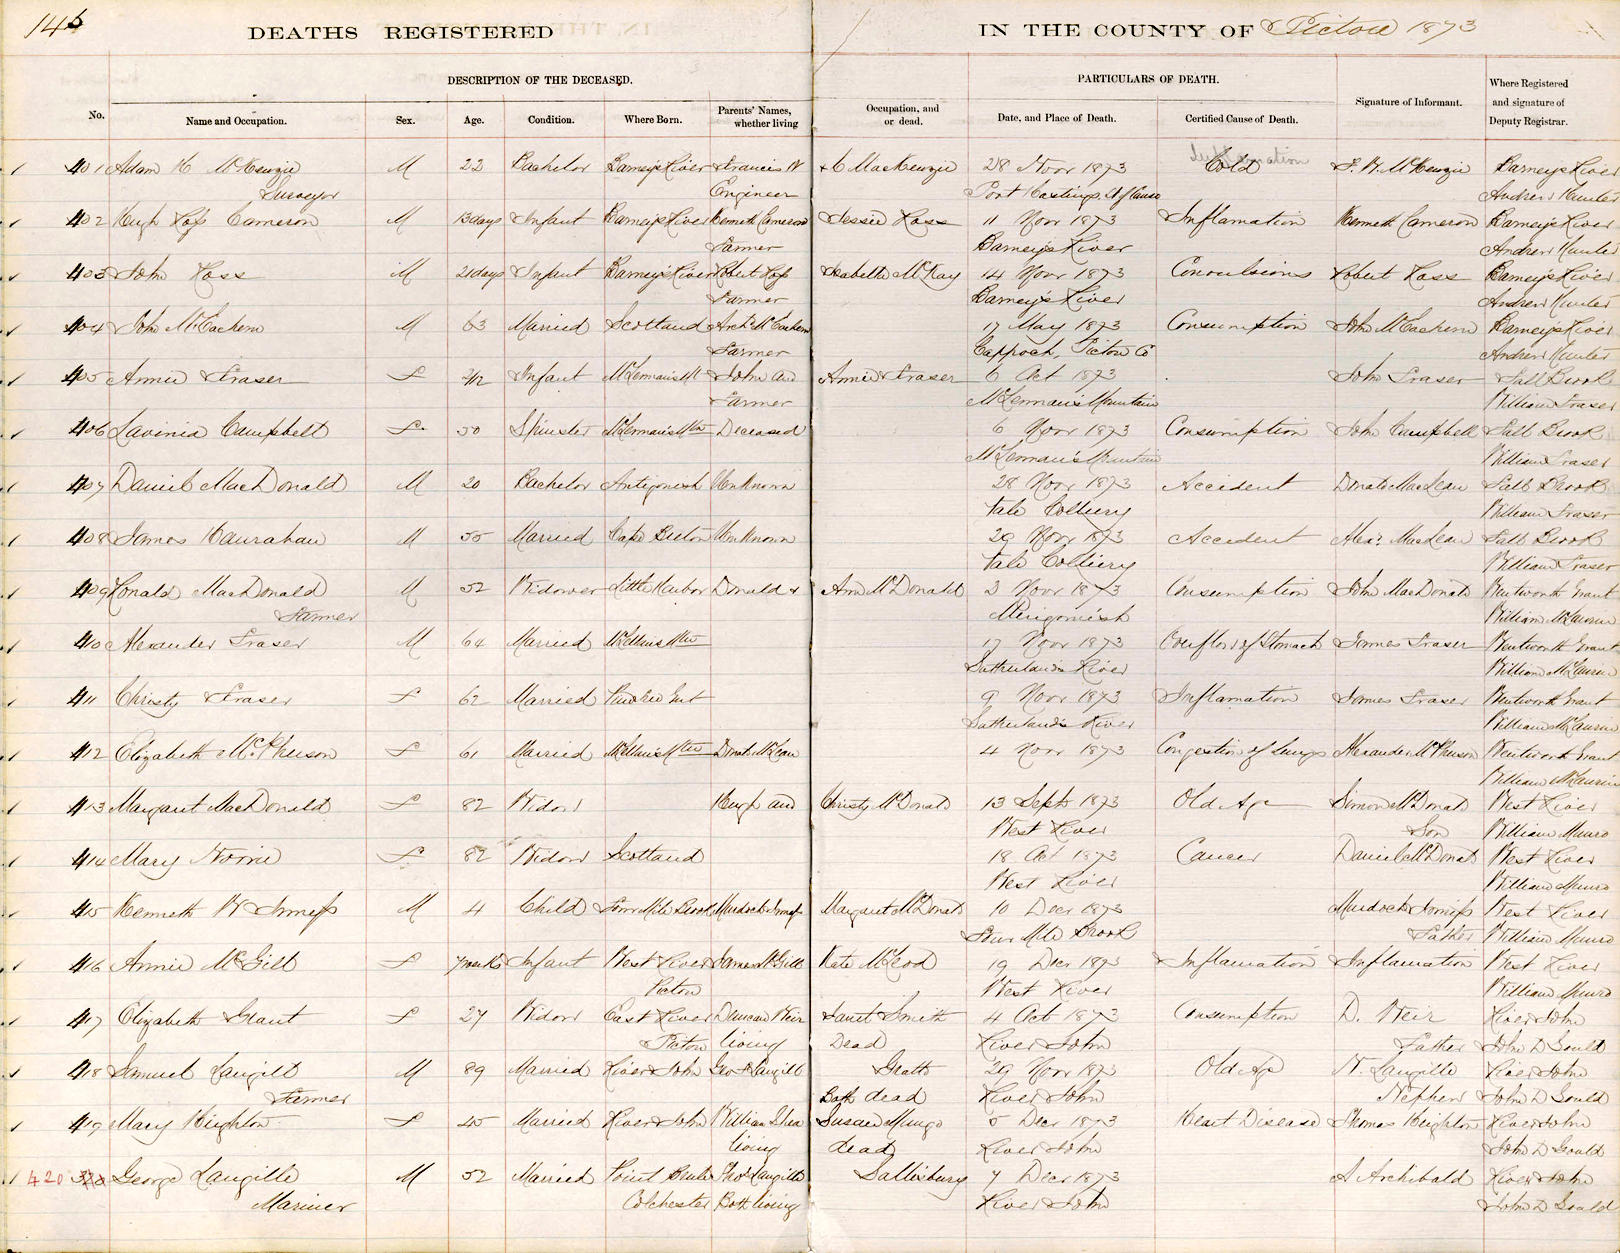 145
DEATHS REGISTERED IN THE COUNTY OF Pictou 1873
DESCRIPTION OF THE DECEASED. PARTICULARS OF DEATH.
No. Name and Occupation. Sex. Age. Condition. Where Born. Parents' Names, whether living Occupation, and or dead. Date, and Place of Death. Certified Cause of Death. Signature of Informant. Where Registered and signature of Deputy Registrar.
401 Adam McKenzie M 22 Bachelor Barney's River Francis W & C MacKenzie 28 Novr 1873 Cold F. W. McKenzie Barney's River
Surveyor Engineer Port Hastings, Andrew Hunter
402 Hugh Ross Cameron M 13 days Infant Barney's River Kenneth Cameron Jessie Ross 11 Novr 1873 Inflamation Kenneth Cameron Barney's River
Farmer Barney's River Andrew Hunter
403 John Ross M 21 days Infant Barney's River Robert Ross Isabella McKay 14 Novr 1873 Convulsions Robert Ross Barney's River
Farmer Barney's River Andrew Hunter
404 John McEachern M 63 Married Scotland Archd McEachern 17 May 1873 Consumption John McEachern Barney's River
Farmer Cappoch, Pictou Co Andrew Hunter
405 Annie Fraser F Infant McLennan's Mt John and Annie Fraser 6 Oct 1873 John Fraser Salt Brook
Farmer McLennan's Mountain William Fraser
406 Lavinia Campbell F 50 Spinster McLennan's Mtn Deceased 6 Novr 1873 Consumption John Campbell Salt Brook
McLennan's Mountain William Fraser
407 Daniel MacDonald M 20 Bachelor Antigonish Unknown 28 Novr 1873 Accident Donald MacLean Salt Brook
Vale Colliery William Fraser
408 James Hanrahan M 55 Married Cape Breton Unknown 29 Novr 1873 Accident Alexr MacLean Salt Brook
Vale Colliery William Fraser
409 Ronald MacDonald M 52 Widower Little Harbor Donald & Ann McDonald 2 Novr 1873 Consumption John MacDonald Wentworth Grant
Farmer Merigomish William McLaurin
410 Alexander Fraser M 64 Married Mtn 17 Novr 1873 of Stomach James Fraser Wentworth Grant
Sutherland's River William McLaurin
411 Christy Fraser F 62 Married 9 Novr 1873 Inflamation James Fraser Wentworth Grant
Sutherland's River William McLaurin
412 Elizabeth McPherson F 61 Married Mtn Donald McLean 4 Novr 1873 Congestion of Lungs Alexander McPherson Wentworth Grant
William McLaurin
413 Margaret MacDonald F 82 Widow Hugh and Christy McDonald 13 Sept 1873 Old Age Simon McDonald West River
West River Son William Munro
414 Mary Norrie F 82 Widow Scotland 18 Oct 1873 Cancer Daniel McDonald West River
West River William Munro
415 Kenneth W Inness M 4 Child Four Mile Brook Murdoch Inness Margaret McDonald 10 Decr 1873 Murdoch Inness West River
Four Mile Brook Father William Munro
416 Annie McGill F 7 weeks Infant West River James McGill Kate McLeod 19 Decr 1873 Inflamation Inflamation West River
Pictou West River William Munro
417 Elizabeth Grant F 27 Widow East River Duncan Weir Janet Smith 4 Oct 1873 Consumption D. Weir River John
Pictou living Dead River John Father John D Gould
418 Samuel Langill M 89 Married River John Geo F Langill 29 Novr 1873 Old Age N. Langille River John
Farmer Both dead River John Nephew John D Gould
419 Mary Heighton F 45 Married River John William Susan Mungo 5 Decr 1873 Heart Disease Thomas Heighton River John
living dead River John John D Gould
420 George Langille M 52 Married Point Thos Langille Sallisbury 7 Decr 1873 S Archibald River John
Mariner Colchester Both living River John John D Gould